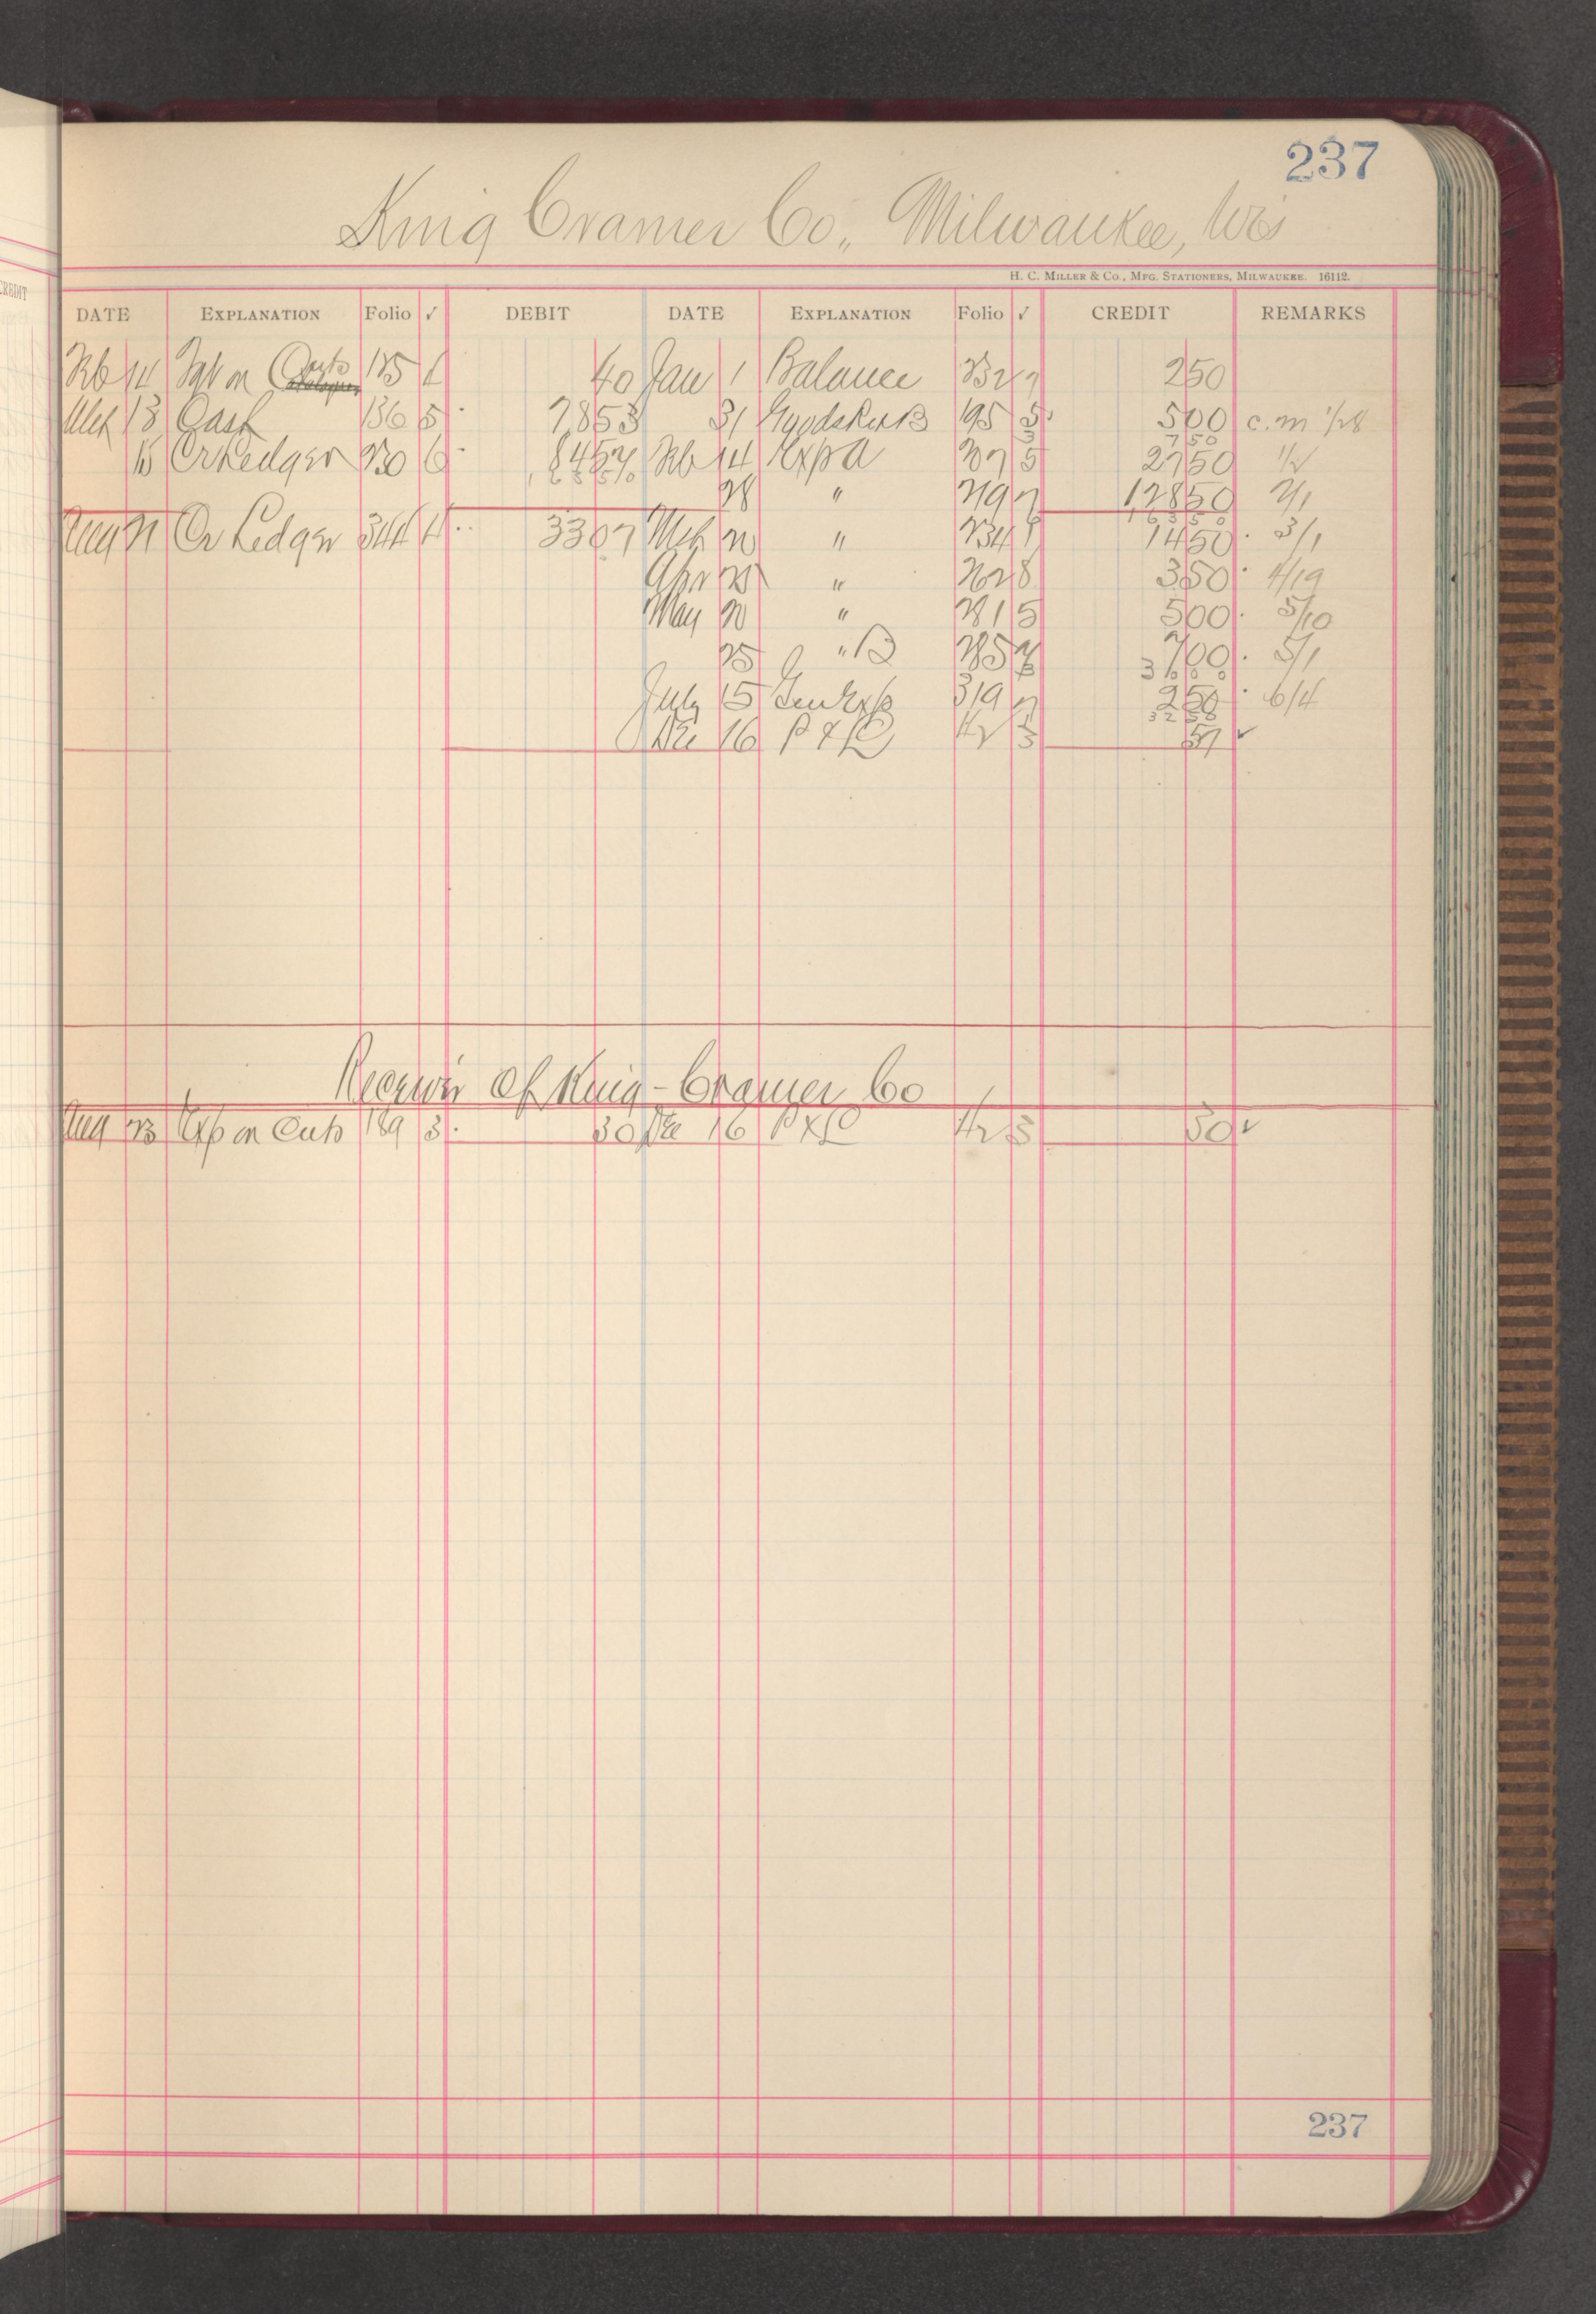 237
King Cramer Co., Milwaukee, Wis
H. C. MILLER & CO., MFG. STATIONERS, MILWAUKEE. 16112.
CREDIT
DATE EXPLANATION Folio ✓ DEBIT DATE EXPLANATION Folio ✓ CREDIT REMARKS
Feb 14 on Cuts 125 40 Jan 1 Balance 250
Mch 13 Cash 136 5 7853 31 195 5 500 c.m 1/28
750
15 Cr Ledger 230 6 8457 Feb 14 Exp a 207 5 2750 1/2
28 " 219 12850 2/1
16350
Aug 21 Cr Ledger 344 4 3307 Mch 20 " 234 1450 3/1
Apr 25 " 262 8 350 4/19
May 20 " 281 5 500 5/10
25 " B 285 700 5/1
3000
July 15 Gen Exp 319 250 6/4
3250
Dec 16 P & L 42 3 57 ✓
Receiver of King-Cramer Co
Aug 23 Exp on Cuts 189 3 30 Dec 16 P & L 42 3 30 ✓
237